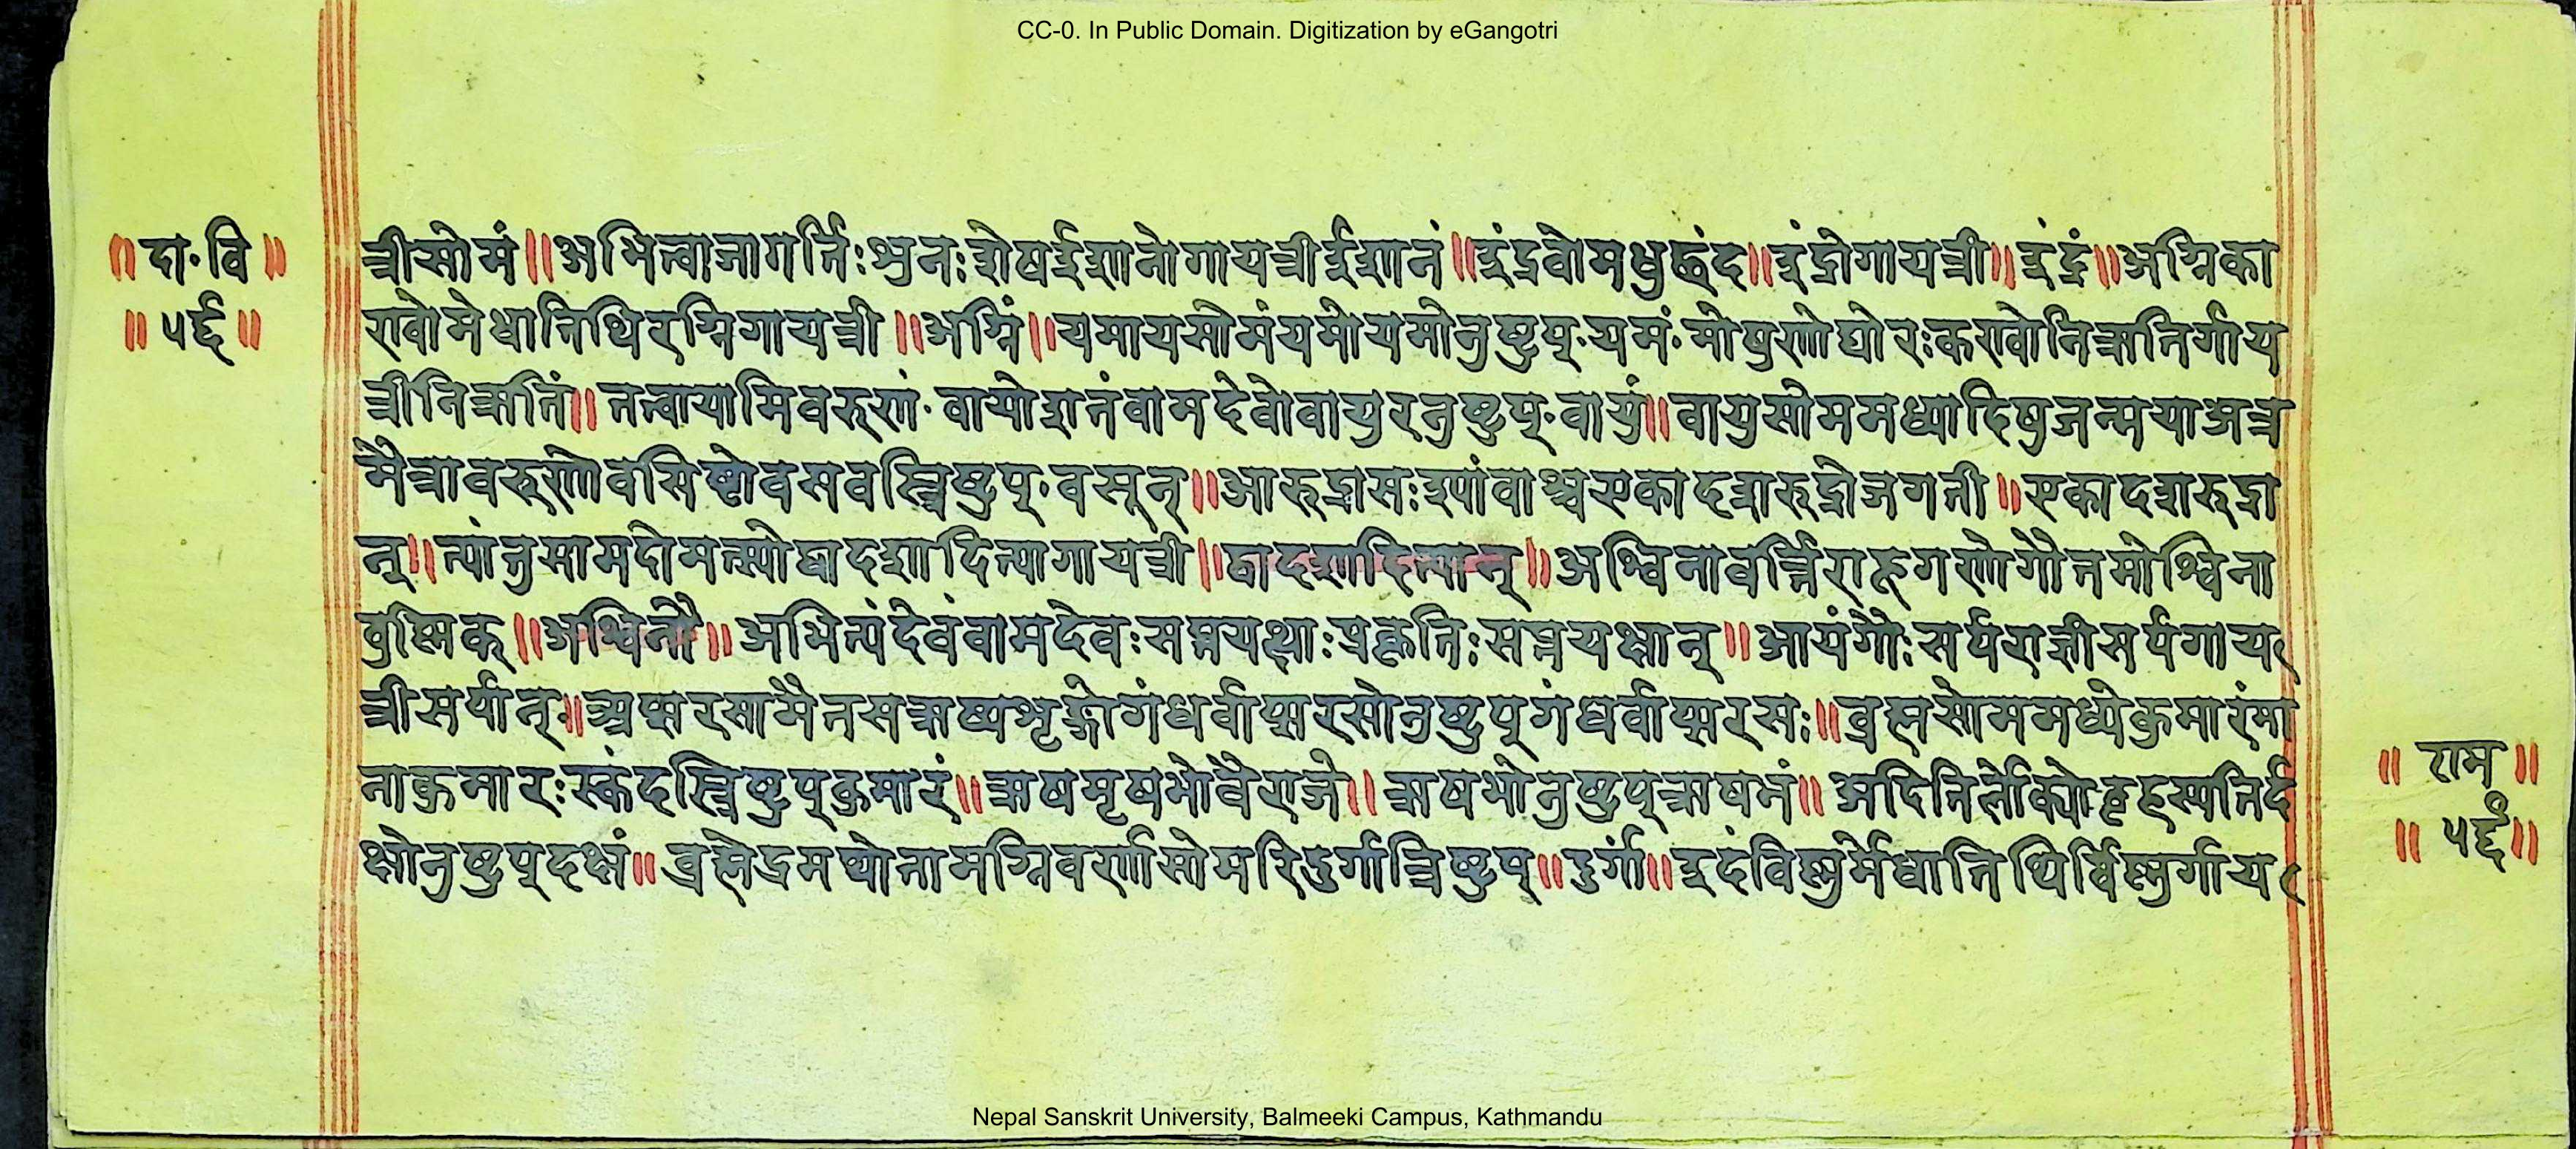 CC-0. In Public Domain. Digitization by eGangotri
॥ दा॰ वि ॥
॥ ५६ ॥
त्रीसोमं॥अभित्वाजागर्त्तिःशुनःशेषईशानोगायत्रीईशानं॥इंद्रवोमधुछंद॥इंद्रोगायत्री॥इंद्रं॥अग्निका
ण्वोमेधातिथिरग्निगायत्री॥अग्निं॥यमायसोमंयमोयमोनुष्टुप्॰यमं॰मोषुणोघोरःकण्वोनिऋतिर्गाय
त्रीनिऋतिं॥तत्वायामिवरुणं॰वायोशतंवामदेवोवायुरनुष्टुप्॰वायुं॥वायुसोममध्यादिषुजन्मयाअत्र
मैत्रावरुणोवसिष्ठोवसवस्त्रिष्टुप्॰वसून्॥आरुद्रासःश्यावाश्वएकादशरुद्रोजगती॥एकादशरुद्रा
न्॥त्यांनुमामदोमत्स्योद्वादशादित्यागायत्री॥द्वादशादित्यान्॥अश्विनावर्त्तिराहूगणोगौतमोश्विना
वुष्णिक्॥अश्विनौ॥अभित्यंदेवंवामदेवःसप्तयक्षाःप्रकृतिःसप्तयक्षान्॥आयंगौःसर्पराज्ञीसर्पगाय
त्रीसर्पान्॥अप्सरसामैतसऋष्यशृङ्गोगंधर्वाप्सरसोनुष्टुप्गंधर्वाप्सरसः॥ब्रह्मसोममध्येकुमारंमा
ताकुमारःस्कंदस्त्रिष्टुप्कुमारं॥ऋषमृषभोवैराजो॥ऋषभोनुष्टुप्ऋषभं॥अदितिर्लोक्योबृहस्पतिर्द
क्षोनुष्टुप्दक्षं॥ब्रह्मेंद्रमध्येतामग्निवर्णासोमरिदुर्गात्रिष्टुप्॥दुर्गां॥इदंविष्णुर्मेधातिथिर्विष्णुर्गाय
॥ राम ॥
॥ ५६ ॥
Nepal Sanskrit University, Balmeeki Campus, Kathmandu